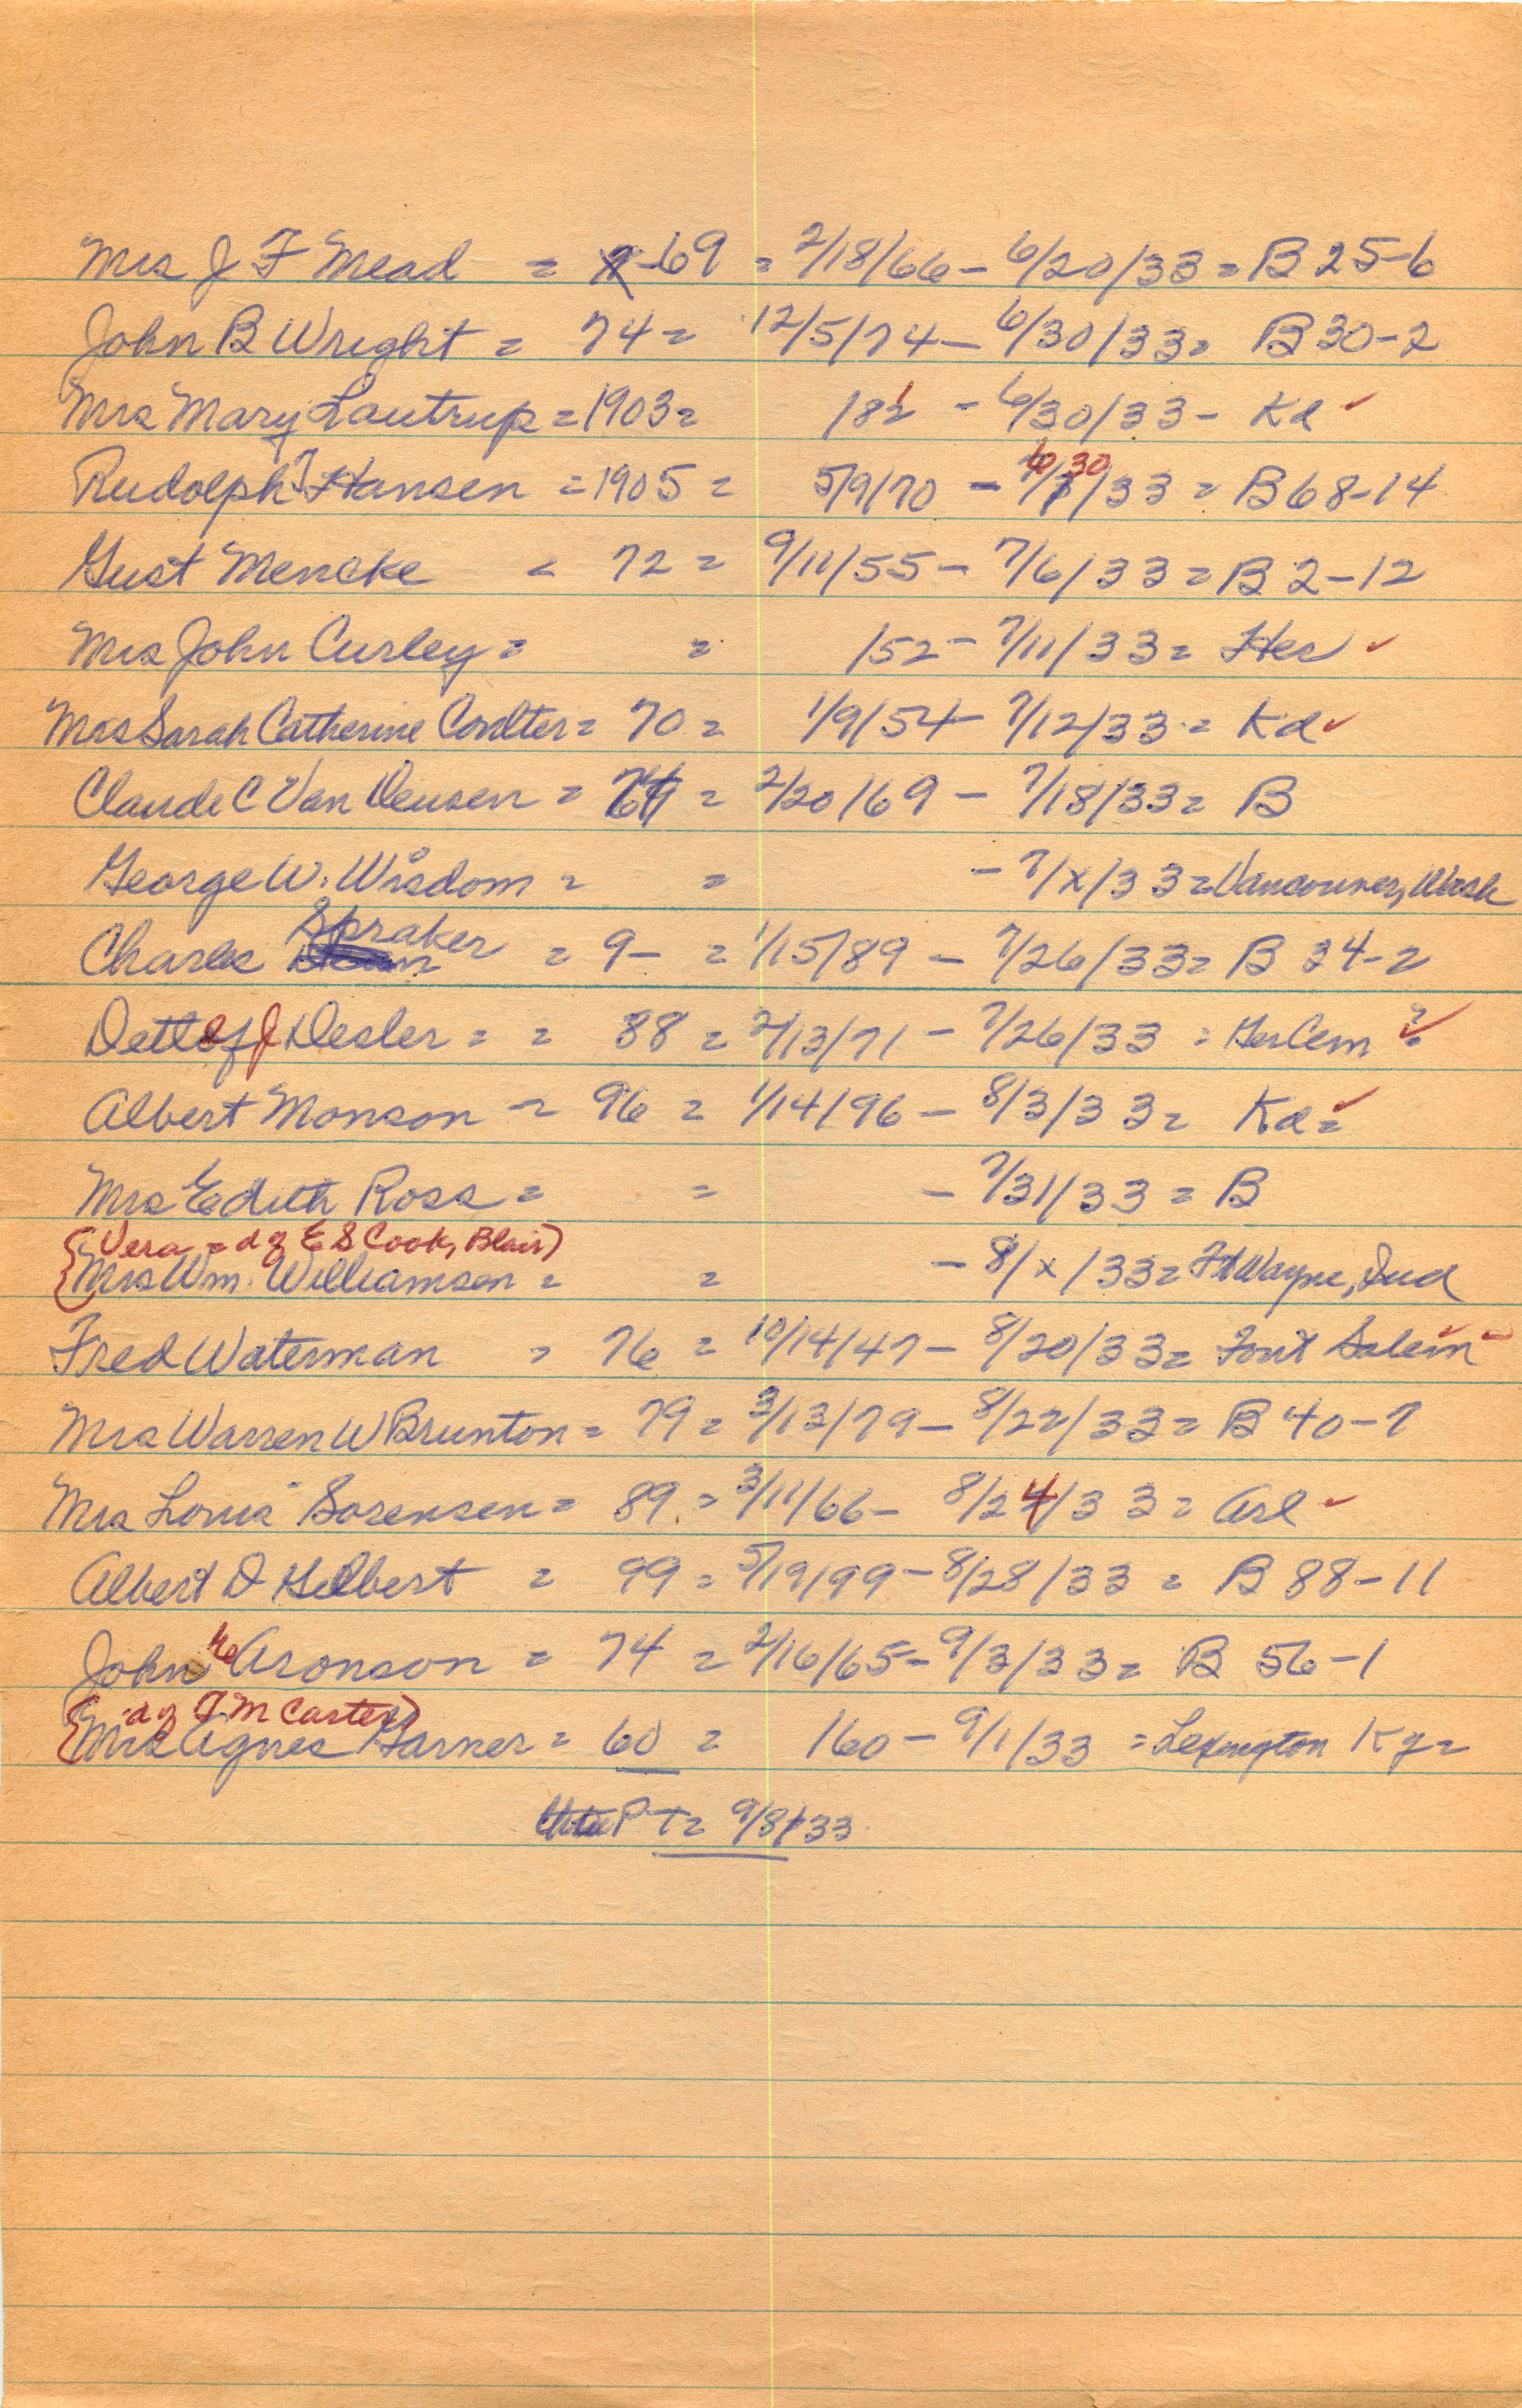 Mrs J F Mead = -69 = 2/18/66 - 6/20/33 = B 25-6
John B Wright = 74 = 12/5/74 - 6/30/33 = B 30-2
Mrs Mary Lautrup = 1903 = 182 - 6/30/33 - Kd ✓
Rudolph J Hansen = 1905 = 5/9/70 - 6/30/33 = B 68-14
Gust Mencke = 72 = 9/11/55 - 7/6/33 = B 2-12
Mrs John Curley = = 152 - 7/11/33 = Her ✓
Mrs Sarah Catherine Coulter = 70 = 1/9/54 - 7/12/33 = Kd ✓
Claude C Van Deusen = = 2/20/69 - 7/18/33 = B
George W. Wisdom = = - 7/x/33 = Vancouver, Wash
Charles Spraker = 9- = 1/15/89 - 7/26/33 = B 34-2
Detlef J Desler = = 88 = 2/13/71 - 7/26/33 = Ger Cem ? ✓
Albert Monson = 96 = 1/14/96 - 8/3/33 = Kd = ✓
Mrs Edith Ross = = - 7/31/33 = B
(Vera = d of E S Cook, Blair)
Mrs Wm. Williamson = = - 8/x/33 = Ft Wayne, Ind
Fred Waterman = 76 = 10/14/47 - 8/20/33 = Font Salem
Mrs Warren W Brunton = 79 = 3/13/79 - 8/22/33 = B 40-7
Mrs Louis Sorensen = 89 = 3/11/66 - 8/24/33 = Arl ✓
Albert D Gilbert = 99 = 5/19/99 - 8/28/33 = B 88-11
John Aronson = 74 = 2/16/65 - 9/3/33 = B 56-1
(d of F M Carter)
Mrs Agnes Garner = 60 = 160 - 9/1/33 = Lexington Ky =
PT = 9/8/33